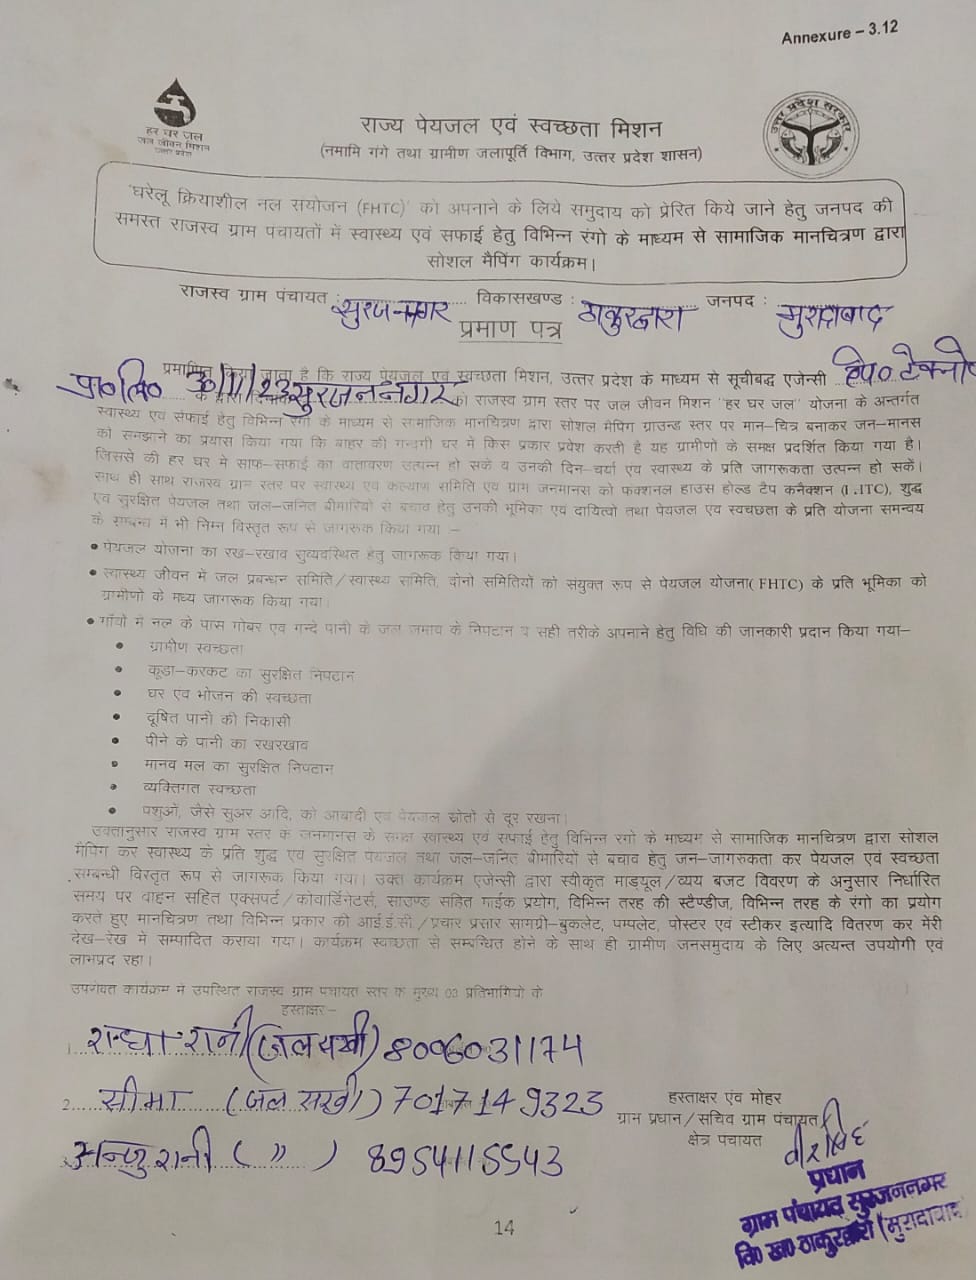 Annexure – 3.12
हर घर जल
जल जीवन मिशन
उत्तर प्रदेश
उत्तर प्रदेश सरकार
राज्य पेयजल एवं स्वच्छता मिशन
(नमामि गंगे तथा ग्रामीण जलापूर्ति विभाग, उत्तर प्रदेश शासन)
'घरेलू क्रियाशील नल सयोजन (FHTC)' को अपनाने के लिये समुदाय को प्रेरित किये जाने हेतु जनपद की
समस्त राजस्व ग्राम पंचायतों में स्वास्थ्य एवं सफाई हेतु विभिन्न रंगो के माध्यम से सामाजिक मानचित्रण द्वारा
सोशल मैपिंग कार्यक्रम।
राजस्व ग्राम पंचायत : सुरजननगर विकासखण्ड : ठाकुरद्वारा जनपद : मुरादाबाद
प्रमाण पत्र
प्रमाणित किया जाता है कि राज्य पेयजल एवं स्वच्छता मिशन, उत्तर प्रदेश के माध्यम से सूचीबद्ध एजेन्सी
प्रा० लि० 30/11/23 सुरजननगर को राजस्व ग्राम स्तर पर जल जीवन मिशन "हर घर जल" योजना के अन्तर्गत
स्वास्थ्य एवं सफाई हेतु विभिन्न रंगो के माध्यम से सामाजिक मानचित्रण द्वारा सोशल मैपिंग ग्राउन्ड स्तर पर मान–चित्र बनाकर जन–मानस
को समझाने का प्रयास किया गया कि बाहर की गन्दगी घर में किस प्रकार प्रवेश करती है यह ग्रामीणों के समक्ष प्रदर्शित किया गया है।
जिससे की हर घर मे साफ–सफाई का वातावरण उत्पन्न हो सके व उनकी दिन–चर्या एवं स्वास्थ्य के प्रति जागरूकता उत्पन्न हो सकें।
साथ ही साथ राजस्व ग्राम स्तर पर स्वास्थ्य एवं कल्याण समिति एवं ग्राम जनमानस को फंक्शनल हाउस होल्ड टैप कनैक्शन शुद्ध
एवं सुरक्षित पेयजल तथा जल–जनित बीमारियों से बचाव हेतु उनकी भूमिका एवं दायित्वों तथा पेयजल एवं स्वच्छता के प्रति योजना समन्वय
के सम्बन्ध में भी निम्न विस्तृत रूप से जागरूक किया गया :–
• पेयजल योजना का रख–रखाव सुव्यवस्थित हेतु जागरूक किया गया।
• स्वास्थ्य जीवन में जल प्रबन्धन समिति/स्वास्थ्य समिति, दोनो समितियों को संयुक्त रूप से पेयजल योजना( FHTC) के प्रति भूमिका को
ग्रामीणों के मध्य जागरूक किया गया।
• गाँवो में नल के पास गोबर एवं गन्दे पानी के जल जमाव के निपटान व सही तरीके अपनाने हेतु विधि की जानकारी प्रदान किया गया–
• ग्रामीण स्वच्छता
• कूडा–करकट का सुरक्षित निपटान
• घर एवं भोजन की स्वच्छता
• दूषित पानी की निकासी
• पीने के पानी का रखरखाव
• मानव मल का सुरक्षित निपटान
• व्यक्तिगत स्वच्छता
• पशुओं, जैसे सुअर आदि, को आबादी एवं पेयजल स्रोतों से दूर रखना।
उक्तानुसार राजस्व ग्राम स्तर के जनमानस के समक्ष स्वास्थ्य एवं सफाई हेतु विभिन्न रंगो के माध्यम से सामाजिक मानचित्रण द्वारा सोशल
मैपिंग कर स्वास्थ्य के प्रति शुद्ध एवं सुरक्षित पेयजल तथा जल–जनित बीमारियों से बचाव हेतु जन–जागरुकता कर पेयजल एवं स्वच्छता
सम्बन्धी विस्तृत रूप से जागरूक किया गया। उक्त कार्यक्रम एजेन्सी द्वारा स्वीकृत माड्यूल/व्यय बजट विवरण के अनुसार निर्धारित
समय पर वाहन सहित एक्सपर्ट/कोवार्डिनेटर्स, साउण्ड सहित माईक प्रयोग, विभिन्न तरह की स्टैण्डीज, विभिन्न तरह के रंगो का प्रयोग
करते हुए मानचित्रण तथा विभिन्न प्रकार की आई.ई.सी./प्रचार प्रसार सामग्री–बुकलेट, पम्पलेट, पोस्टर एवं स्टीकर इत्यादि वितरण कर मेरी
देख–रेख में सम्पादित कराया गया। कार्यक्रम स्वच्छता से सम्बन्धित होने के साथ ही ग्रामीण जनसमुदाय के लिए अत्यन्त उपयोगी एवं
लाभप्रद रहा।
उपरोक्त कार्यक्रम में उपस्थित राजस्व ग्राम पंचायत स्तर के मुख्य 03 प्रतिभागियों के
हस्ताक्षर:–
1. राधा रानी (जल सखी) 8006031174
2. सीमा (जल सखी) 7017149323
3. अन्जु रानी ( " ) 8954115543
हस्ताक्षर एंव मोहर
ग्राम प्रधान/सचिव ग्राम पंचायत/
क्षेत्र पंचायत
प्रधान
ग्राम पंचायत सुरजननगर
वि० ख० ठाकुरद्वारा (मुरादाबाद)
14